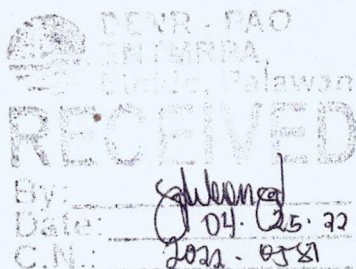 DENR - PAO
Palawan
RECEIVED
By:
Date: 04. 25. 22
C.N.: 2022 - 0581